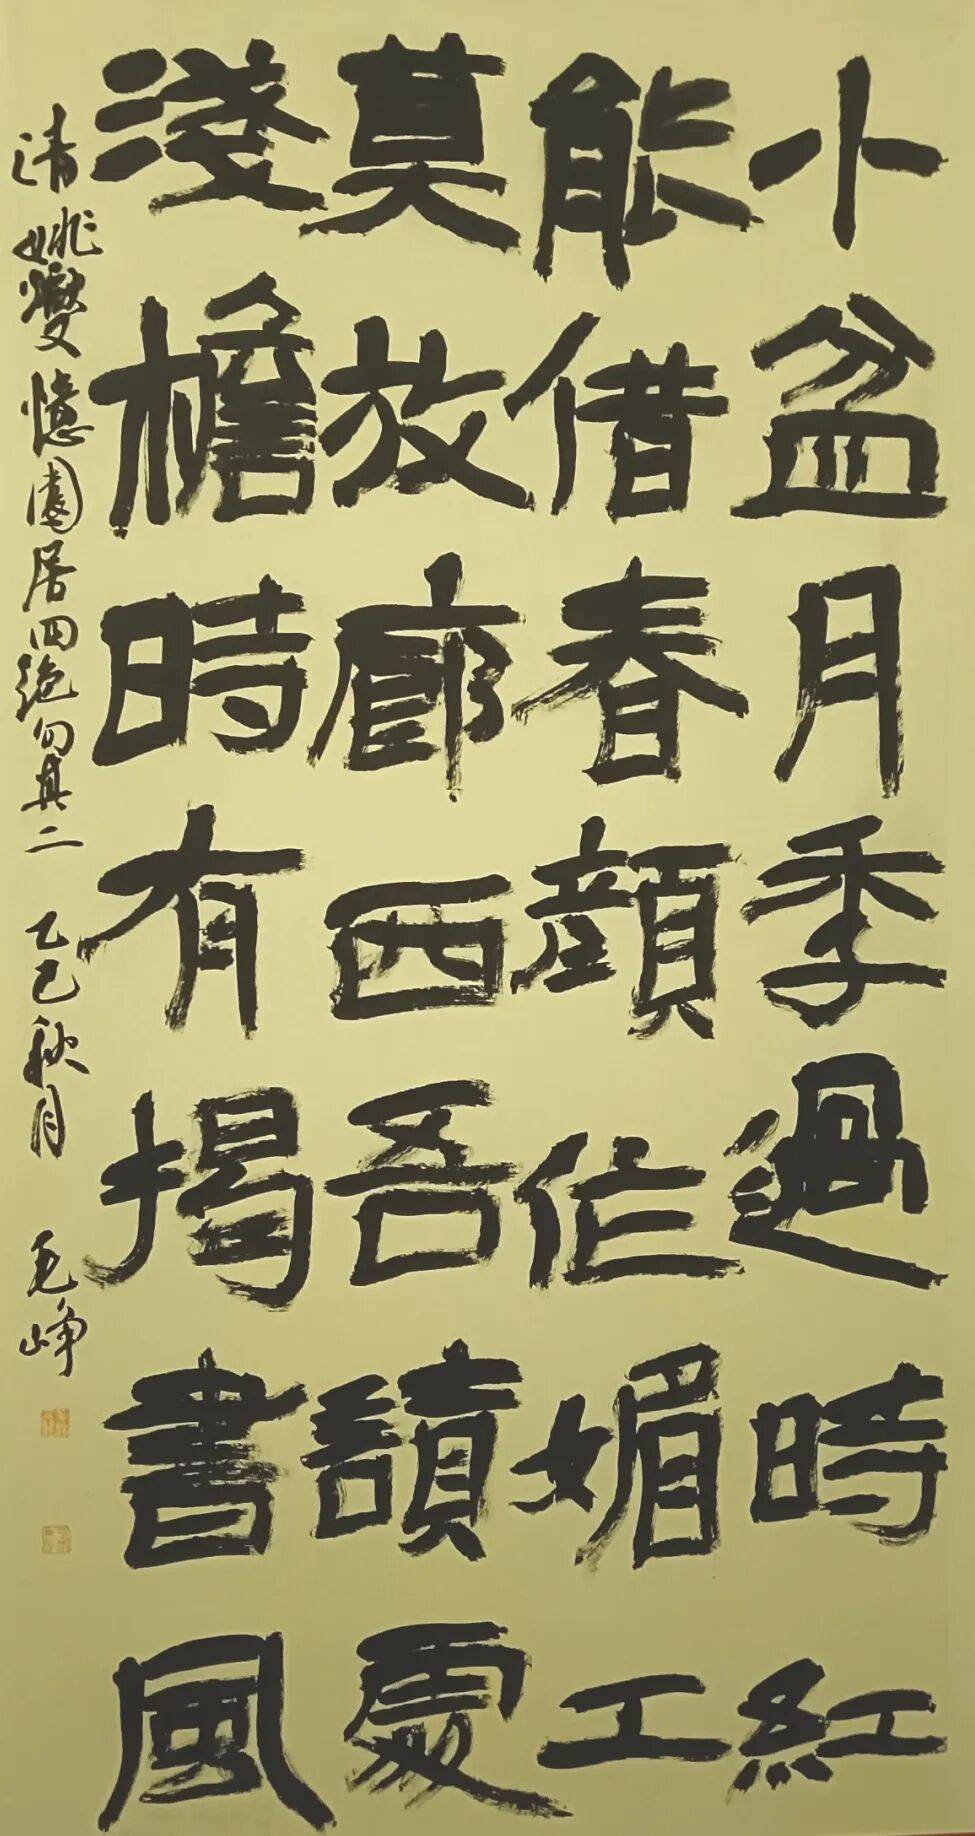 小盆月季過時紅
能借春顔作媚工
莫放廊西吾讀處
淺檐時有揭書風
清姚燮憶園居四絶句其二 乙巳秋月 毛峥